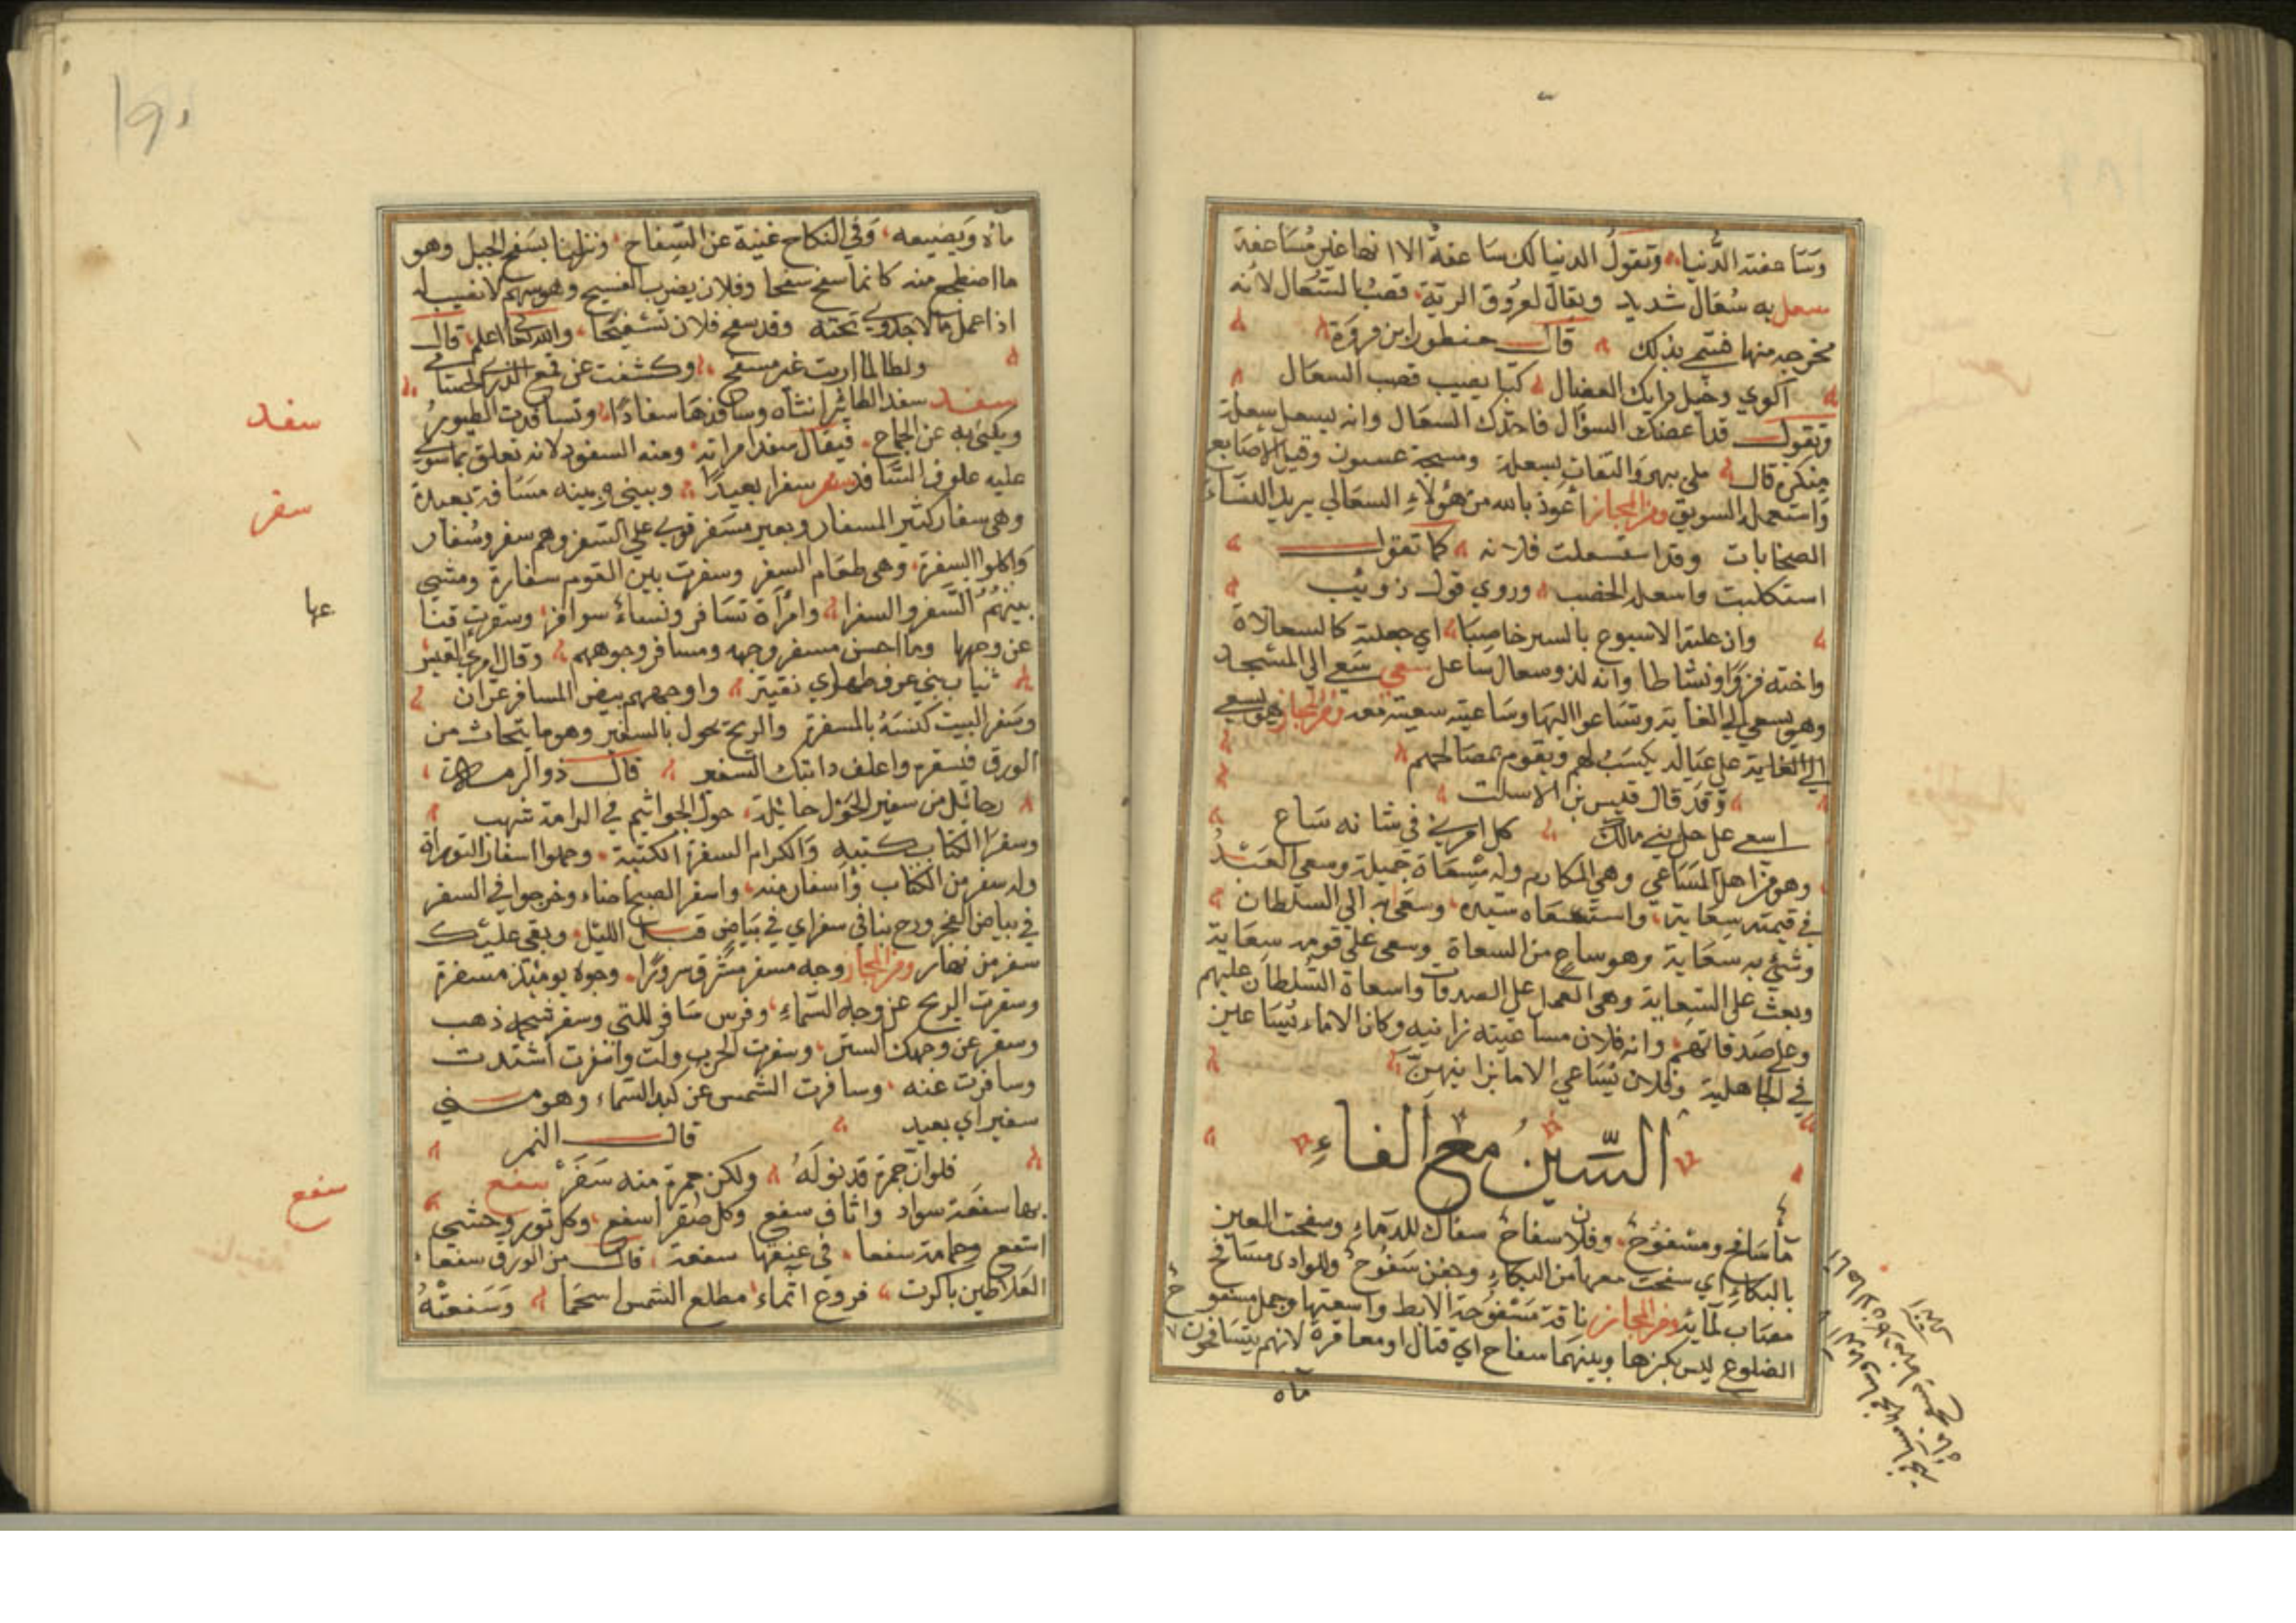 وساعفته الدنيا وتقول الدنيا لك ساعفة الا انها غير مساعفة
سعل به سعال شديد ويقال لعروق الرية قصب السعال لانه
مخرجه منها فسمي بذلك قال
آكوي ذخيل رايك العضال كيا يصيب قصب السعال
وتقول قد اعضك السؤال فاخذك السعال وانه ليسعل سعلة
منكرة قال ملي ببهر والتفات وسعلة ومسحة عسنون وفتل الاصابع
واستعمل السويق ومن المجاز أعوذ بالله من هؤلاء السعالي يريد النساء
الصخابات وقد استسعلت فلانة كما تقول
استكلبت واسعله الخصب وروي قول ذويب
اي جعلته كالسعلاة
واخته فزوا ونشاطا وانه لذو سعال ساعل سعي سعى الى المسجد
وهو يسعى الى الغاية وتساعوا اليها وساعيته سعيت معه ومن المجاز هو يسعى
الى الغاية على عياله يكسب لهم ويقوم بمصالحهم
وقد قال قيس بن الاسلت
اسعى على جل بني مالك كل امرئ في شانه ساع
وهو من اهل المساعي وهي المكارم وله مسعاة جميلة وسعى العبد
في قيمته سعاية واستسعاه سيده وسعى به الى السلطان
وشي به سعاية وهو ساع من السعاة وسعى على قومه سعاية
وبعث على السعاية وهي العمل على الصدقات واسعاه السلطان عليهم
وعلى صدقاتهم وانه فلان مساعيته زانيه وكان الاماء يساعين
في الجاهلية وفلان يساعي الاما يزانيهن
السين مع الفاء
ماء سافح ومسفوح وفلان سفاح سفاك للدماء وسفحت العين
بالبكاء اي سفحت دمعها من البكاء وجفن سفوح وللوادي مسافح
مصاب لمائه ومن المجاز ناقة مسفوحة الابط واسعتها وجمل مسفوح
الضلوع ليس بكزها وبينهما سفاح اي قتال او معاقرة لانهم يتسافحون
ماه
١٩٠
ماه ويضيعه وفي النكاح غنية عن السفاح ونزلنا بسفح الجبل وهو
ما اضطجع منه كانما سفح سفحا وفلان يضرب السفيح وهو سهم لا نصيب له
اذا عمل ما لا جدوى تحته وقد سفح فلان تسفيحا والله تعالى اعلم قال
ولطالما اربت غير مسفح وكشفت عن قمع الذرى بحسام
سفد سفد الطائر انثاه وسافدها سفادا وتسافدت الطيور
ويكنى به عن الجماع فيقال سفد امراته ومنه السفود لانه تعلق بما يشوى
عليه علوق السافد سفر سفر سفرا بعيدا وبيني وبينه مسافة بعيدة
وهي سفار كثير المسفار وبعير مسفر قوي على السفر وهم سفر وسفار
واكلوا السفرة وهي طعام السفر وسفرت بين القوم سفارة ومشى
بينهم السفر والسفرا وامرأة تسافر ونساء سوافر وسفرت قناعها
عن وجهها وما احسن مسفر وجهه ومسافر وجوههم وقال امرئ القيس
ثياب بني عوف طهاري نقية واوجههم بيض المسافر غران
وسفر البيت كنسه بالمسفرة والريح تجول بالسفير وهو ما يتحاث من
الورق فتسفره واعلف دابتك السفير قال ذو الرمة
وحائل من سفير الحول جائلة حول الجراثيم في الوانه شهب
وسفر الكتاب كتبه والكرام السفرة الكتبة وحملوا اسفار التوراة
وله سفر من الكتاب واسفار منه واسفر الصبح اضاء وخرجوا في السفر
في بياض الفجر ورح بنا في سفر اي في بياض قبل الليل وبقي عليك
سفر من نهار ومن المجاز وجه مسفر مشرق سرورا وجوه يومئذ مسفرة
وسفرت الريح عن وجه السماء وفرس سافر للحم وسفر شحمه ذهب
وسفر عن وجهك الستر وسفرت الحرب ولت واسفرت اشتدت
وسافرت عنه وسافرت الشمس عن كبد السماء وهو مني
سفير اي بعيد قال النمر
فلو ان جمرة تدنو له ولكن جمرة منه سفر سفع
بها سفعة سواد واثافي سفع وكل صقر اسفع وكل ثور وحشي
اسفع وحمامة سفعا في عنقها سفعة قال من الورق سفعاء
العلاطين باكرت فروع اشاء مطلع الشمس اسحما وسفعته
سفد
سفر
عها
سفع